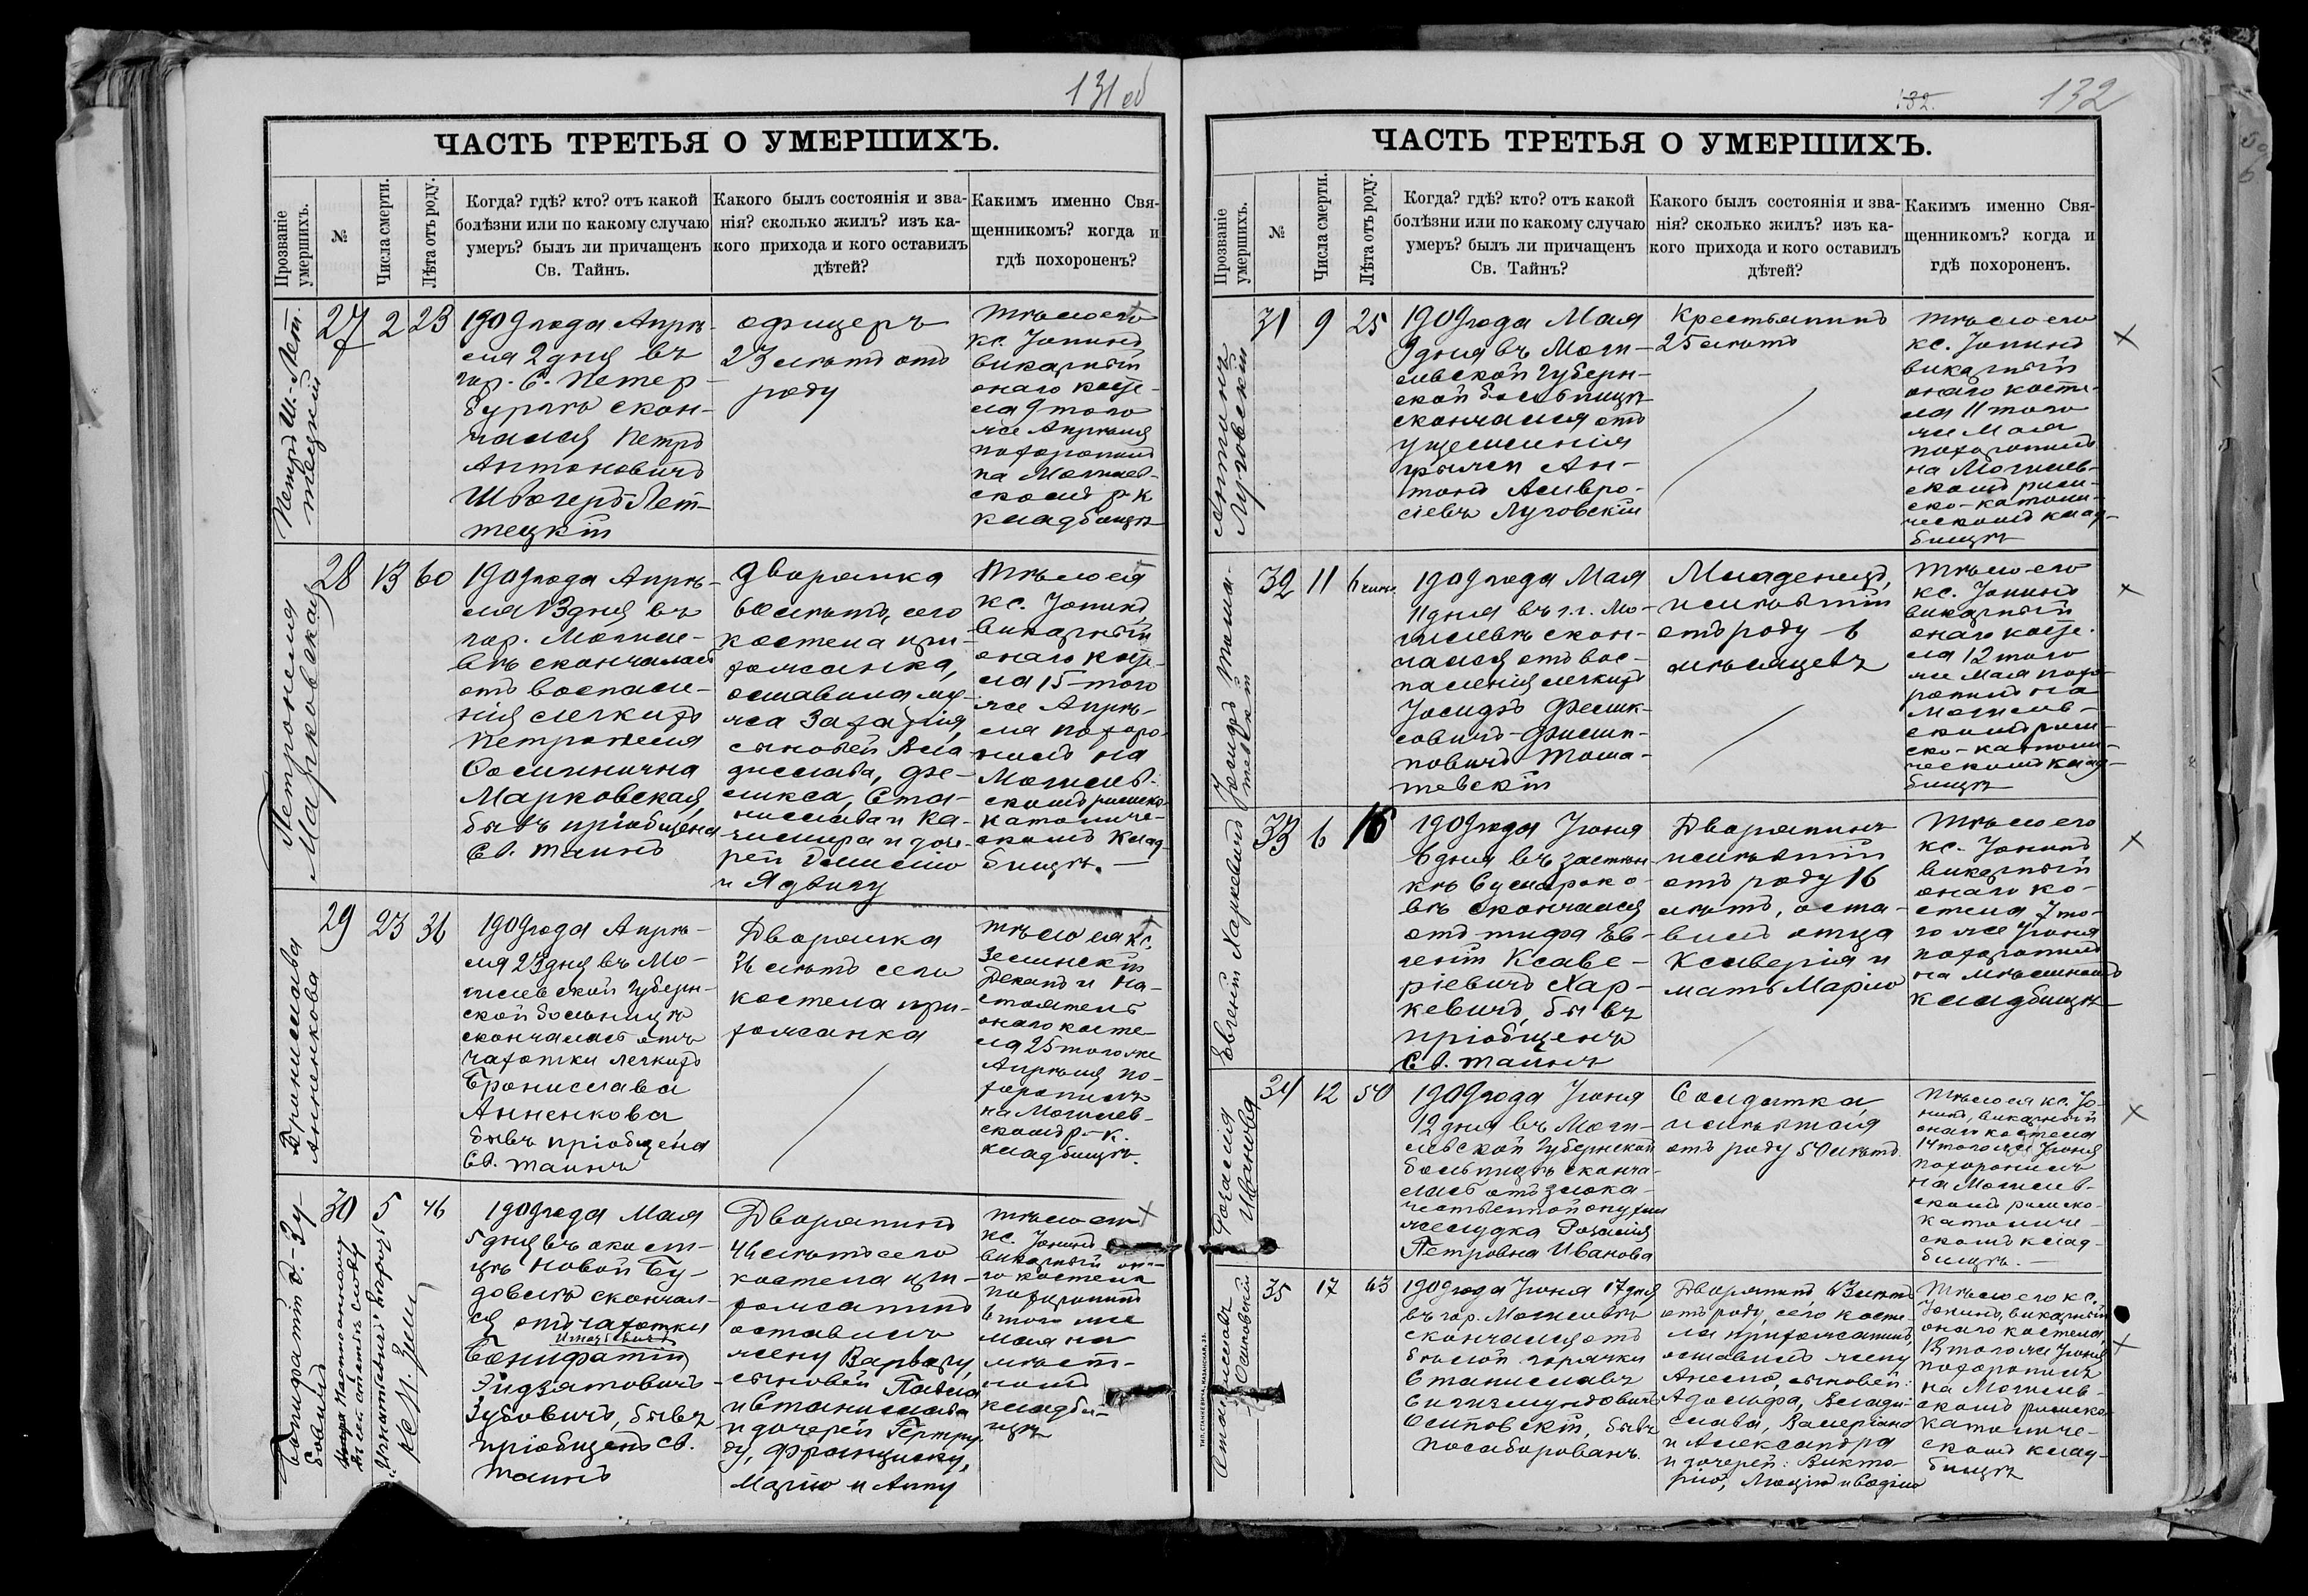 131 об
ЧАСТЬ ТРЕТЬЯ О УМЕРШИХЪ.
Прозваніе умершихъ.
№
Числа смерти.
Лѣта отъ роду.
Когда? гдѣ? кто? отъ какой
болѣзни или по какому случаю
умеръ? былъ ли причащенъ
Св. Тайнъ.
Какого былъ состоянія и зва-
нія? сколько жилъ? изъ ка-
кого прихода и кого оставилъ
дѣтей?
Какимъ именно Свя-
щенникомъ? когда и
гдѣ похороненъ?
Петръ Ш.-Лет-
тецкій
27
2
23
1909 года Апрѣ-
ля 2 дня въ
гор. С. Петер-
бургѣ скон-
чался Петръ
Антоновичъ
Лет-
тецкій
офицеръ
23 лѣтъ отъ
роду
Тѣло его
кс. Іонинъ
викарный
онаго косте-
ла 9 того
же Апрѣля
похоронилъ
на Могилев-
скомъ р-к
кладбищѣ
Петронеля
Марковская
28
13
60
1909 года Апрѣ-
ля 13 дня въ
гор. Могиле-
вѣ скончалась
отъ воспале-
нія легкихъ
Петронеля
Марковская,
бывъ пріобщена
Св. Таинъ
Дворянка
60 лѣтъ, сего
костела при-
хожанка,
оставила му-
жа Захарія,
сыновей Вла-
дислава, Фе-
ликса, Ста-
нислава и Ка-
зимира и доче-
рей
и Ядвигу
Тѣло ея
кс. Іонинъ,
викарный
онаго косте-
ла 15 того
же Апрѣ-
ля похоро-
нилъ на
Могилев-
скомъ римско-
католиче-
скомъ клад-
бищѣ. —
Бронислава
Анненкова
29
23
36
1909 года Апрѣ-
ля 23 дня въ Мо-
гилевской Губерн-
ской больницѣ
скончалась отъ
чахотки легкихъ
Бронислава
Анненкова
бывъ пріобщена
Св. Таинъ
Дворянка
36 лѣтъ сего
костела при-
хожанка
Тѣло ея кс.
Зелинскій
Деканъ и На-
стоятель
онаго косте-
ла 25 того же
Апрѣля по-
хоронилъ
на Могилев-
скомъ р-к.
кладбищѣ.
Бонифатій Э. Зу-
бовичъ
30
5
46
1909 года Мая
5 дня въ околи-
цѣ Новой Бу-
довлѣ скончал-
ся отъ чахотки
Игнатьевичъ
Бонифатій
Зубовичъ, бывъ
пріобщенъ Св.
Таинъ
Дворянинъ
46 лѣтъ сего
костела при-
хожанинъ
оставилъ
жену Варвару,
сыновей Павла
и Станислава
и дочерей Гертру-
ду, Францишку,
Марію и Анну
Тѣло его
кс. Іонинъ
викарный она-
го костела
похоронилъ
6 того же
Мая на
мѣст-
номъ
кладби-
щѣ
132
132
ЧАСТЬ ТРЕТЬЯ О УМЕРШИХЪ.
Прозваніе умершихъ.
№
Числа смерти.
Лѣта отъ роду.
Когда? гдѣ? кто? отъ какой
болѣзни или по какому случаю
умеръ? былъ ли причащенъ
Св. Тайнъ?
Какого былъ состоянія и зва-
нія? сколько жилъ? изъ ка-
кого прихода и кого оставилъ
дѣтей?
Какимъ именно Свя-
щенникомъ? когда и
гдѣ похороненъ.
Антонъ
Луговскій
31
9
25
1909 года Мая
9 дня въ Моги-
левской Губерн-
ской больницѣ
скончался отъ
ущемленія
грыжи Ан-
тонъ Амвро-
сіевъ Луговскій
Крестьянинъ
25 лѣтъ
Тѣло его
кс. Іонинъ
викарный
онаго косте-
ла 11 того
же Мая
похоронилъ
на Могилев-
скомъ рим-
ско-католи-
ческомъ клад-
бищѣ
Іосифъ Тома-
шевскій
32
11
1909 года Мая
11 дня въ г. г. Мо-
гилевѣ скон-
чался отъ вос-
паленія легкихъ
Іосифъ Фелик-
совичъ-Филип-
повичъ Тома-
шевскій
Младенецъ,
имѣвшій
отъ роду 6
мѣсяцевъ
Тѣло его
кс. Іонинъ
викарный
онаго косте-
ла 12 того
же Мая похо-
ронилъ на
Могилев-
скомъ рим-
ско-католи-
ческомъ клад-
бищѣ
Евгеній Харкевичъ
33
6
16
1909 года Іюня
6 дня въ застѣн-
кѣ Сумароко-
вѣ скончался
отъ тифа Ев-
геній Ксаве-
ріевичъ Хар-
кевичъ, бывъ
пріобщенъ
Св. Таинъ
Дворянинъ
имѣвшій
отъ роду 16
лѣтъ, оста-
вилъ отца
Ксаверія и
мать Марію
Тѣло его
кс. Іонинъ
викарный
онаго ко-
стела 7 то-
го же Іюня
похоронилъ
на мѣстномъ
кладбищѣ
Розалія
Иванова
34
12
50
1909 года Іюня
12 дня въ Моги-
левской Губернской
больницѣ сконча-
лась отъ злока-
чественной опухоли
желудка Розалія
Петровна Иванова
Солдатка,
имѣвшая
отъ роду 50 лѣтъ.
Тѣло ея кс. Іо-
нинъ, викарный
онаго костела
14 того же Іюня
похоронилъ
на Могилев-
скомъ римско-
католиче-
скомъ клад-
бищѣ. —
Станиславъ
Осиповскій
35
17
63
1909 года Іюня 17 дня
въ гор. Могилевѣ
скончался отъ
бѣлой горячки
Станиславъ
Сигизмундовичъ
Осиповскій, бывъ
пособорованъ.
Дворянинъ 63 лѣтъ
отъ роду, сего косте-
ла прихожанинъ,
оставилъ жену
Анелю, сыновей:
Адольфа, Влади-
слава, Валеріана
и Александра
и дочерей: Викто-
рію, Люцію и Софію
Тѣло его кс.
Іонинъ, викарный
онаго костела,
того же Іюня
похоронилъ
на Могилев-
скомъ римско-
католиче-
скомъ клад-
бищѣ